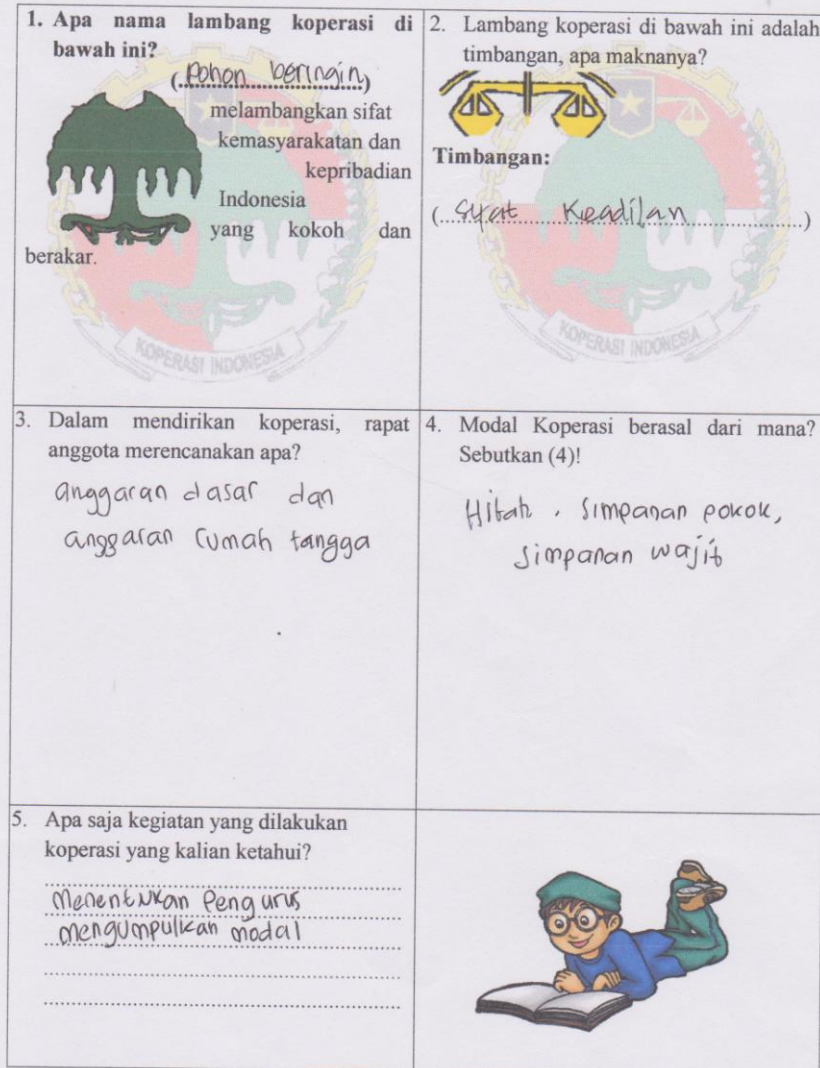 1. Apa nama lambang koperasi di
bawah ini?
(..Pohon beringin..)
melambangkan sifat
kemasyarakatan dan
kepribadian
Indonesia
yang kokoh dan
berakar.
KOPERASI INDONESIA
2. Lambang koperasi di bawah ini adalah
timbangan, apa maknanya?
Timbangan:
(....Syat....Keadilan....)
KOPERASI INDONESIA
3. Dalam mendirikan koperasi, rapat
anggota merencanakan apa?
anggaran dasar dan
anggaran rumah tangga
4. Modal Koperasi berasal dari mana?
Sebutkan (4)!
Hibah, Simpanan pokok,
Simpanan wajib
5. Apa saja kegiatan yang dilakukan
koperasi yang kalian ketahui?
Menentukan Pengurus
mengumpulkan modal